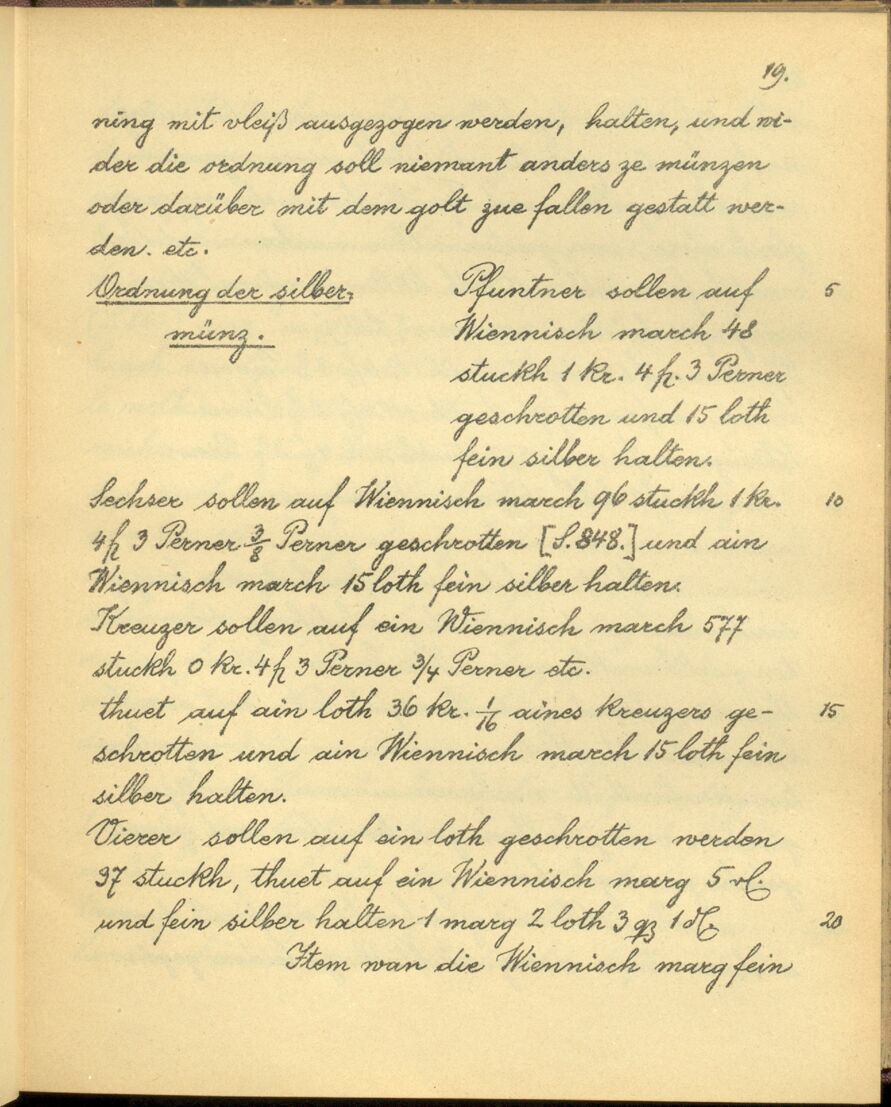 19.
ning mit vleiß ausgezogen werden, halten, und wi-
der die ordnung soll niemant anders ze münzen
oder darüber mit dem golt zue fallen gestatt wer-
den. etc.
Ordnung der silber-
münz.
Pfuntner sollen auf 5
Wiennisch march 48
stuckh 1 kr. 4 f. 3 Perner
geschrotten und 15 loth
fein silber halten.
Sechser sollen auf Wiennisch march 96 stuckh 1 kr. 10
4 f 3 Perner 3/8 Perner geschrotten [S. 848.] und ain
Wiennisch march 15 loth fein silber halten.
Kreuzer sollen auf ein Wiennisch march 577
stuckh 0 kr. 4 f 3 Perner 3/4 Perner etc.
thuet auf ain loth 36 kr. 1/16 aines kreuzers ge- 15
schrotten und ain Wiennisch march 15 loth fein
silber halten.
Vierer sollen auf ein loth geschrotten werden
37 stuckh, thuet auf ein Wiennisch marg 5
und fein silber halten 1 marg 2 loth 3 1 20
Item wan die Wiennisch marg fein